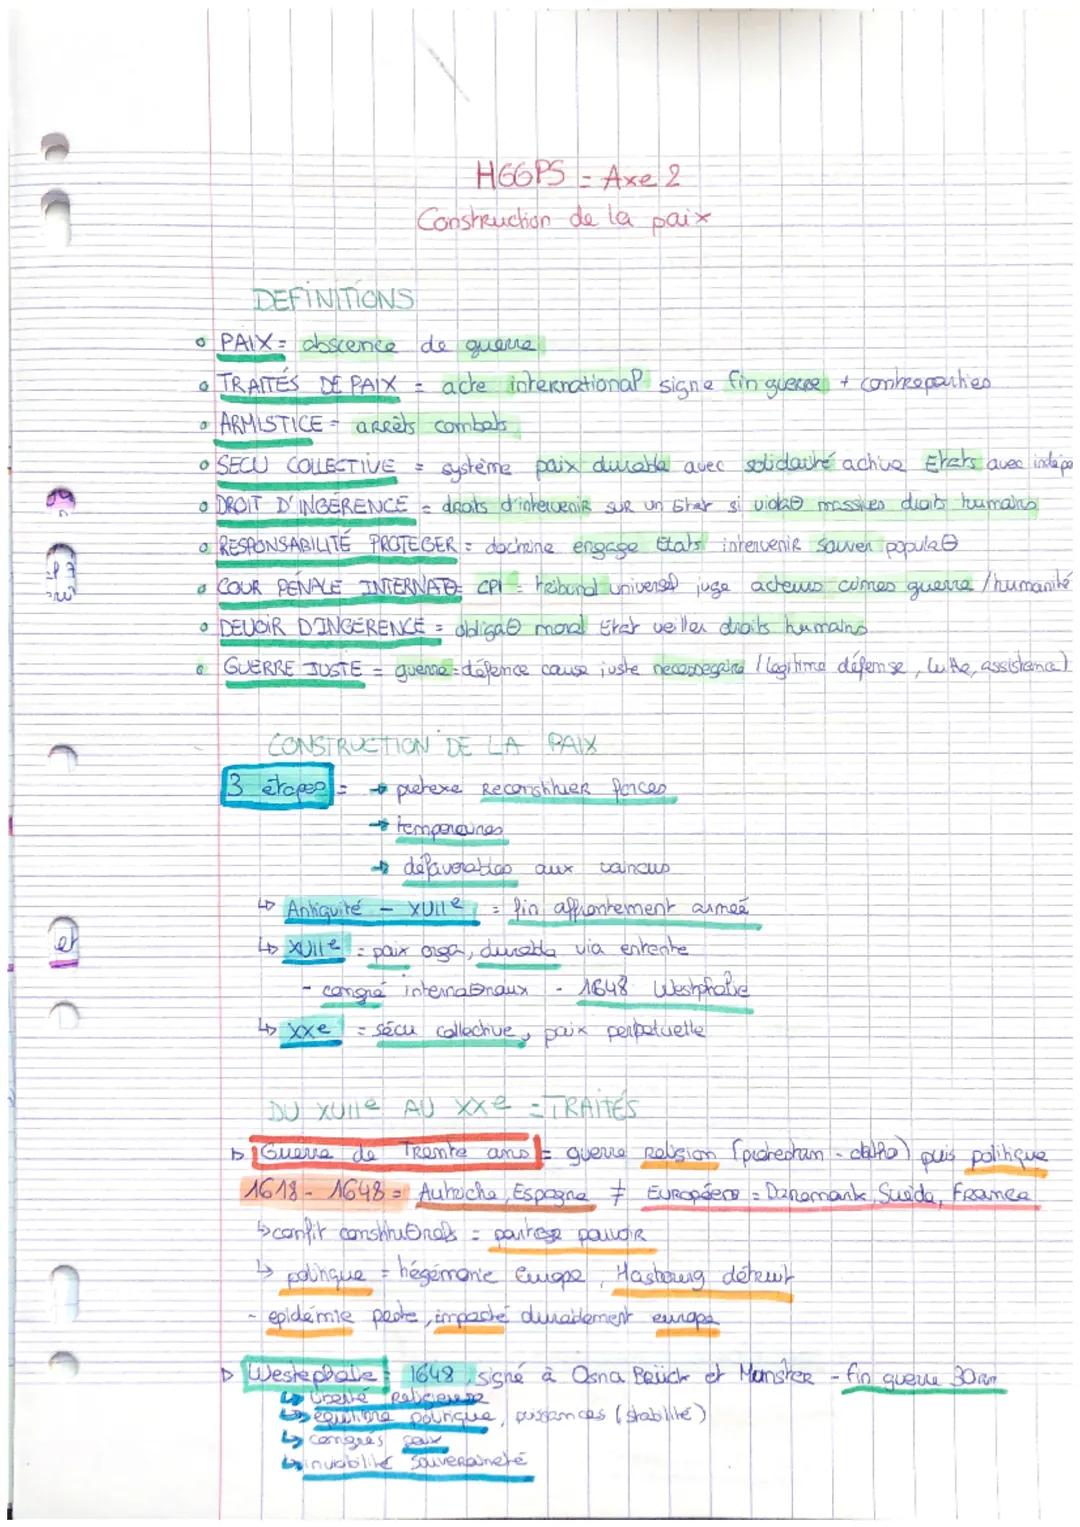 HGGPS = Axe 2
Construction de la paix
DEFINITIONS
PAIX = abscence de guerre
TRAITÉS DE PAIX = acte international signe fin guerre + contreparties
ARMISTICE = arrêts combats
SECU COLLECTIVE = système paix durable avec solidarité active Etats avec indépe
DROIT D'INGÉRENCE = droits d'intervenir sur un Etat si violaΘ massives droits humains
RESPONSABILITÉ PROTEGER = doctrine engage Etats intervenir sauver populaΘ
COUR PÉNALE INTERNATΘ = CPI = tribunal universel juge acteurs crimes guerre / humanité
DEVOIR D'INGÉRENCE = obligaΘ moral Etat veiller droits humains
GUERRE JUSTE = guerre = défence cause juste (légitime défense, lutte, assistance)
CONSTRUCTION DE LA PAIX
3 étapes = → pretexe reconstituer forces
→ temporaires
→ défavorables aux vaincus
↳ Antiquité - XVIIe = fin affrontement armée
↳ XVIIe = paix orga, durable via entente
- congré internaΘnaux - 1648 Westphalie
↳ XXe = sécu collective, paix perpetuelle
DU XVIIe AU XXe = TRAITÉS
▷ Guerre de Trente ans = guerre religion (protestan - catho) puis politique
1618 - 1648 = Autriche, Espagne ≠ Européens = Danemark, Suède, France
↳ confit constituΘnels = partage pouvoir
↳ politique = hégémonie Europe, Hasbourg détruit
- epidémie peste, impacté durablement europe
▷ Westephalie = 1648, signé à Osna Brück et Munster - fin guerre 30 an
↳ liberté religieuse
↳ équilibre politique, puissances (stabilité)
↳ congrès paix
↳ inviobilité souveraineté
et